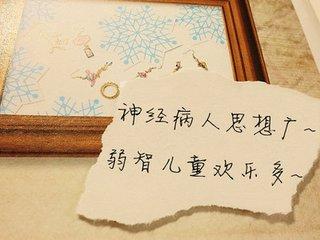 神经病人思想广~
弱智儿童欢乐多~